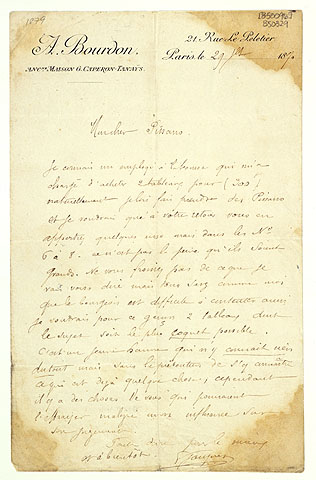 1879
B50096J
B50029
A. Bourdon.
ANCNE MAISON G. CAPERON-TANAYS.
21 Rue Le Peletier
Paris le 29 187
Mon cher Pissarro
Je connais un employé à la bourse qui m'a
chargé d'acheter 2 tableaux pour (300
naturellement je lui fais prendre des Pissarro
et je voudrais que à votre retour vous en
apportiez quelques uns mais dans les Nos
6 à 8. ce n'est pas la peine qu'ils soient
grands. Ne vous froissez pas de ce que je
vais vous dire mais vous savez comme moi
que le bourgeois est difficile à contenter aussi
je voudrais pour ce garçon 2 tableaux dont
le sujet soit le plus coquet possible.
C'est un jeune homme qui n'y connait rien
du tout mais sans la prétention de s'y connaître
ce qui est déjà quelque chose, cependant
il y a des choses de vous qui pourraient
l'effrayer malgré mon influence sur
son jugement
par la main
et à bientôt